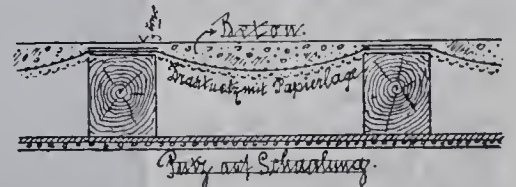 Beton.
Drahtnetz mit Papierlage
Putz auf Schaalung.